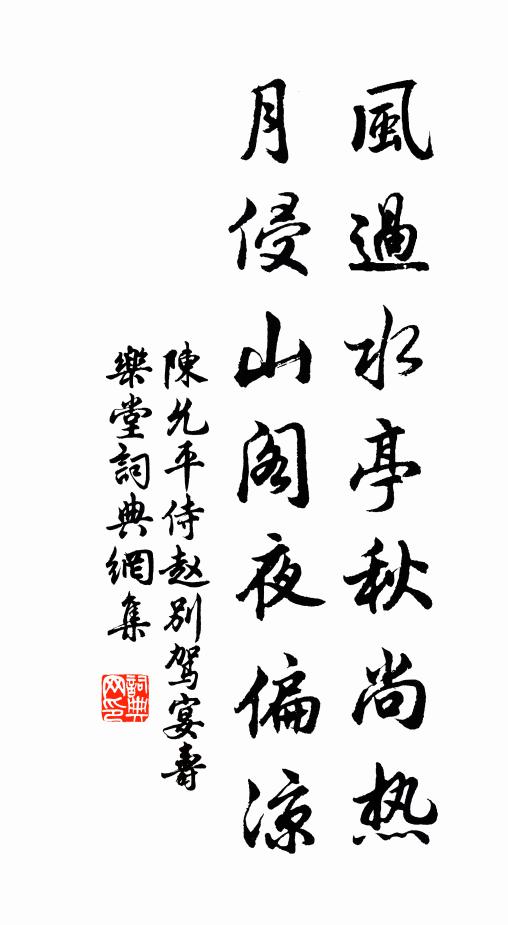 風過水亭秋尚热
月侵山阁夜偏涼
陳允平侍赵别駕宴壽
樂堂詞典網集
詞典网印